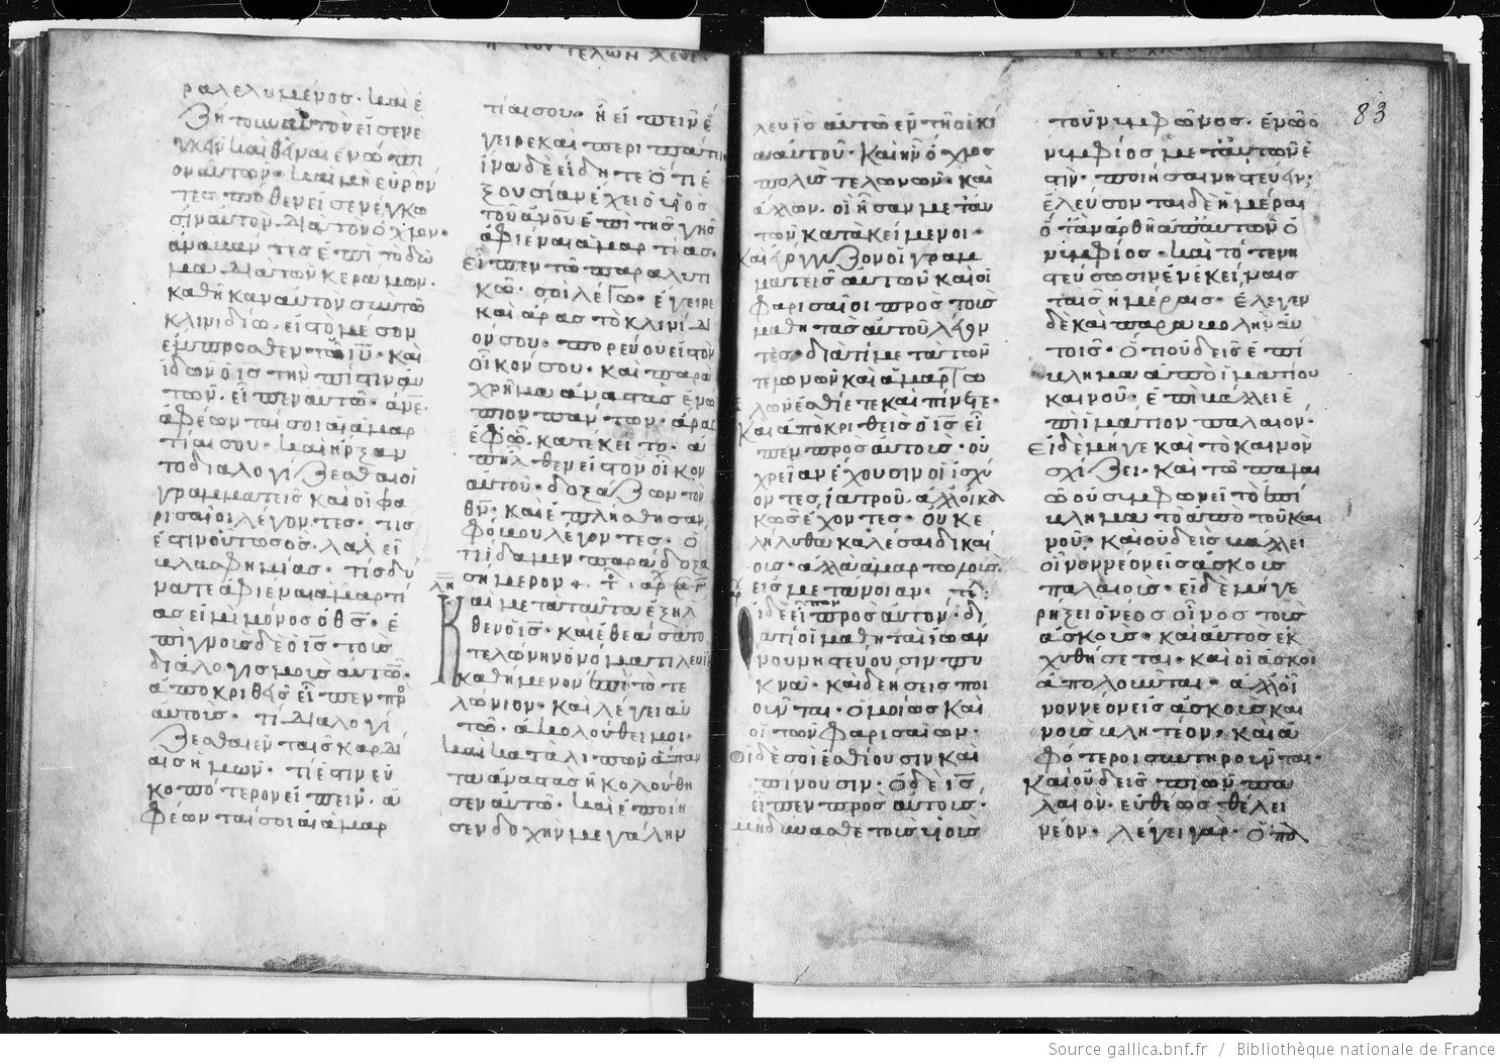 τελωνη λευι
ραλελυμένος· καὶ ἐ
ζήτουν αὐτὸν εἰσενε
γκεῖν καὶ θεῖναι ἐνώπι
ον αὐτοῦ· καὶ μὴ εὑρόν
τες πόθεν εἰσενέγκω
σιν αὐτὸν διὰ τὸν ὄχλον·
ἀναβάντες ἐπὶ τὸ δῶ
μα διὰ τῶν κεράμων·
καθῆκαν αὐτὸν σὺν τῶ
κλινιδίω· εἰς τὸ μέσον
ἔμπροσθεν τοῦ ἰῦ· καὶ
ἰδὼν ὁ ἰς τὴν πίστιν αὐ
τῶν· εἶπεν αὐτῶ· ἄνε·
ἀφέωνταί σοι αἱ ἁμαρ
τίαι σου· καὶ ἤρξαν
το διαλογίζεσθαι οἱ
γραμματεῖς καὶ οἱ φα
ρισαῖοι λέγοντες· τίς
ἐστιν οὗτος ὃς λαλεῖ
βλασφημίας· τίς δύ
ναται ἀφιέναι ἁμαρτί
ας εἰ μὴ μόνος ὁ θς· ἐ
πιγνοὺς δὲ ὁ ις τοὺς
διαλογισμοὺς αὐτῶν·
ἀποκριθεὶς εἶπεν πρ
αὐτούς· τί διαλογί
ζεσθαι ἐν ταῖς καρδί
αις ἡμῶν· τί ἐστιν εὐ
κοπότερον εἰπεῖν· ἀ
φέωνταί σοι αἱ ἁμαρ
τίαι σου· ἢ εἰπεῖν ἔ
γειρε καὶ περιπάτει
ἵνα δὲ εἰδῆτε ὅτι ἐ
ξουσίαν ἔχει ὁ υἱὸς
τοῦ ἀνου ἐπὶ τῆς γῆς
ἀφιέναι ἁμαρτίας·
εἶπεν τῶ παραλυτι
κῶ· σοὶ λέγω· ἔγειρε
καὶ ἄρας τὸ κλινίδι
όν σου· πορεύου εἰς τὸν
οἶκόν σου· καὶ παρα
χρῆμα ἀναστὰς ἐνώ
πιον πάντων· ἄρας
ἐφ' ὧ κατέκειτο· ἀ
πῆλθεν εἰς τὸν οἶκον
αὐτοῦ· δοξάζων τὸν
θν· καὶ ἐπλήσθησαν
φόβου λέγοντες· ὅ
τι εἴδαμεν παράδοξα
σήμερον
Καὶ μετὰ ταῦτα ἐξῆλ
θεν ὁ ις· καὶ ἐθεάσατο
τελώνην ὀνόματι λευὶ
καθήμενον ἐπὶ τὸ τε
λώνιον· καὶ λέγει αὐ
τῶ· ἀκολούθει μοι·
καὶ καταλιπὼν ἅπαν
τα ἀναστὰς ἠκολούθη
σεν αὐτῶ· καὶ ἐποίη
σεν δοχὴν μεγάλην
83
λευὶς αὐτῶ ἐν τῆ οἰκί
α αὐτοῦ· καὶ ἦν ὄχλος
πολὺς τελωνῶν· καὶ
ἄλλων· οἳ ἦσαν μετ' αὐ
τῶν κατακείμενοι·
Καὶ ἐγόγγυζον οἱ γραμ
ματεῖς αὐτῶν καὶ οἱ
φαρισαῖοι πρὸς τοὺς
μαθητὰς αὐτοῦ λέγον
τες· διατί μετὰ τῶν
τελωνῶν καὶ ἁμαρτω
λῶν ἐσθίετε καὶ πίνετε·
Καὶ ἀποκριθεὶς ὁ ις εἶ
πεν πρὸς αὐτούς· οὐ
χρείαν ἔχουσιν οἱ ἰσχύ
οντες ἰατροῦ· ἀλλ' οἱ κα
κῶς ἔχοντες· οὐκ ἐ
λήλυθα καλέσαι δικαί
ους· ἀλλὰ ἁμαρτωλοὺς
εἰς μετάνοιαν·
οἱ δὲ εἶπον πρὸς αὐτόν· δι
ατί οἱ μαθηταὶ ἰω αν
νου νηστεύουσιν πυ
κνά· καὶ δεήσεις ποι
οῦνται· ὁμοίως καὶ
οἱ τῶν φαρισαίων·
Οἱ δὲ σοὶ ἐσθίουσιν καὶ
πίνουσιν· ὁ δὲ ις
εἶπεν πρὸς αὐτούς·
μὴ δύνασθε τοὺς υἱοὺς
τοῦ νυμφῶνος· ἐν ὧ ὁ
νυμφίος μετ' αὐτῶν ἐ
στιν· ποιῆσαι νηστεύειν·
ἐλεύσονται δὲ ἡμέραι
ὅταν ἀρθῆ ἀπ' αὐτῶν ὁ
νυμφίος· καὶ τότε νη
στεύσωσιν ἐν ἐκείναις
ταῖς ἡμέραις· ἔλεγεν
δὲ καὶ παραβολὴν αὐ
τοῖς· ὅτι οὐδεὶς ἐπί
βλημα ἀπὸ ἱματίου
καινοῦ· ἐπιβάλλει ἐ
πὶ ἱμάτιον παλαιόν·
Εἰ δὲ μήγε καὶ τὸ καινὸν
σχίζει· καὶ τῶ παλαι
ῶ οὐ συμφωνεῖ τὸ ἐπί
βλημα τὸ ἀπὸ τοῦ και
νοῦ· καὶ οὐδεὶς βάλλει
οἶνον νέον εἰς ἀσκοὺς
παλαιούς· εἰ δὲ μήγε
ρήξει ὁ νέος οἶνος τοὺς
ἀσκούς· καὶ αὐτὸς ἐκ
χυθήσεται· καὶ οἱ ἀσκοὶ
ἀπολοῦνται· ἀλλ' οἶ
νον νέον εἰς ἀσκοὺς και
νοὺς βλητέον· καὶ ἀμ
φότεροι συντηροῦνται·
Καὶ οὐδεὶς πιὼν πα
λαιὸν· εὐθέως θέλει
νέον· λέγει γάρ· ὁ πα
Source gallica.bnf.fr / Bibliothèque nationale de France